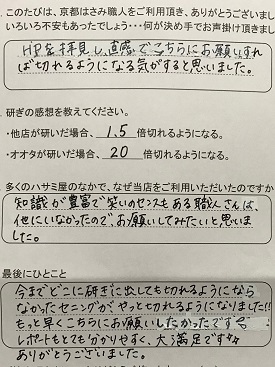 このたびは、京都はさみ職人をご利用頂き、ありがとうございまし
いろいろ不安もあったでしょう・・・何が決め手でお声掛け頂きまし
HPを拝見し、直感でこちらにお願いすれ
ば切れるようになる気がすると思いました。
研ぎの感想を教えてください。
・他店が研いだ場合、1.5 倍切れるようになる。
・オオタが研いだ場合、20 倍切れるようになる。
多くのハサミ屋のなかで、なぜ当店をご利用いただいたのですか
知識が豊富で笑いのセンスもある職人さんは、
他にいなかったので、お願いしてみたいと思いま
した。
最後にひとこと
今までどこに研ぎに出しても切れるようになら
なかったセニングが、やっと切れるようになりました!!
もっと早くこちらにお願いしたかったです
レポートもとても分かりやすく、大満足です
ありがとうございました。